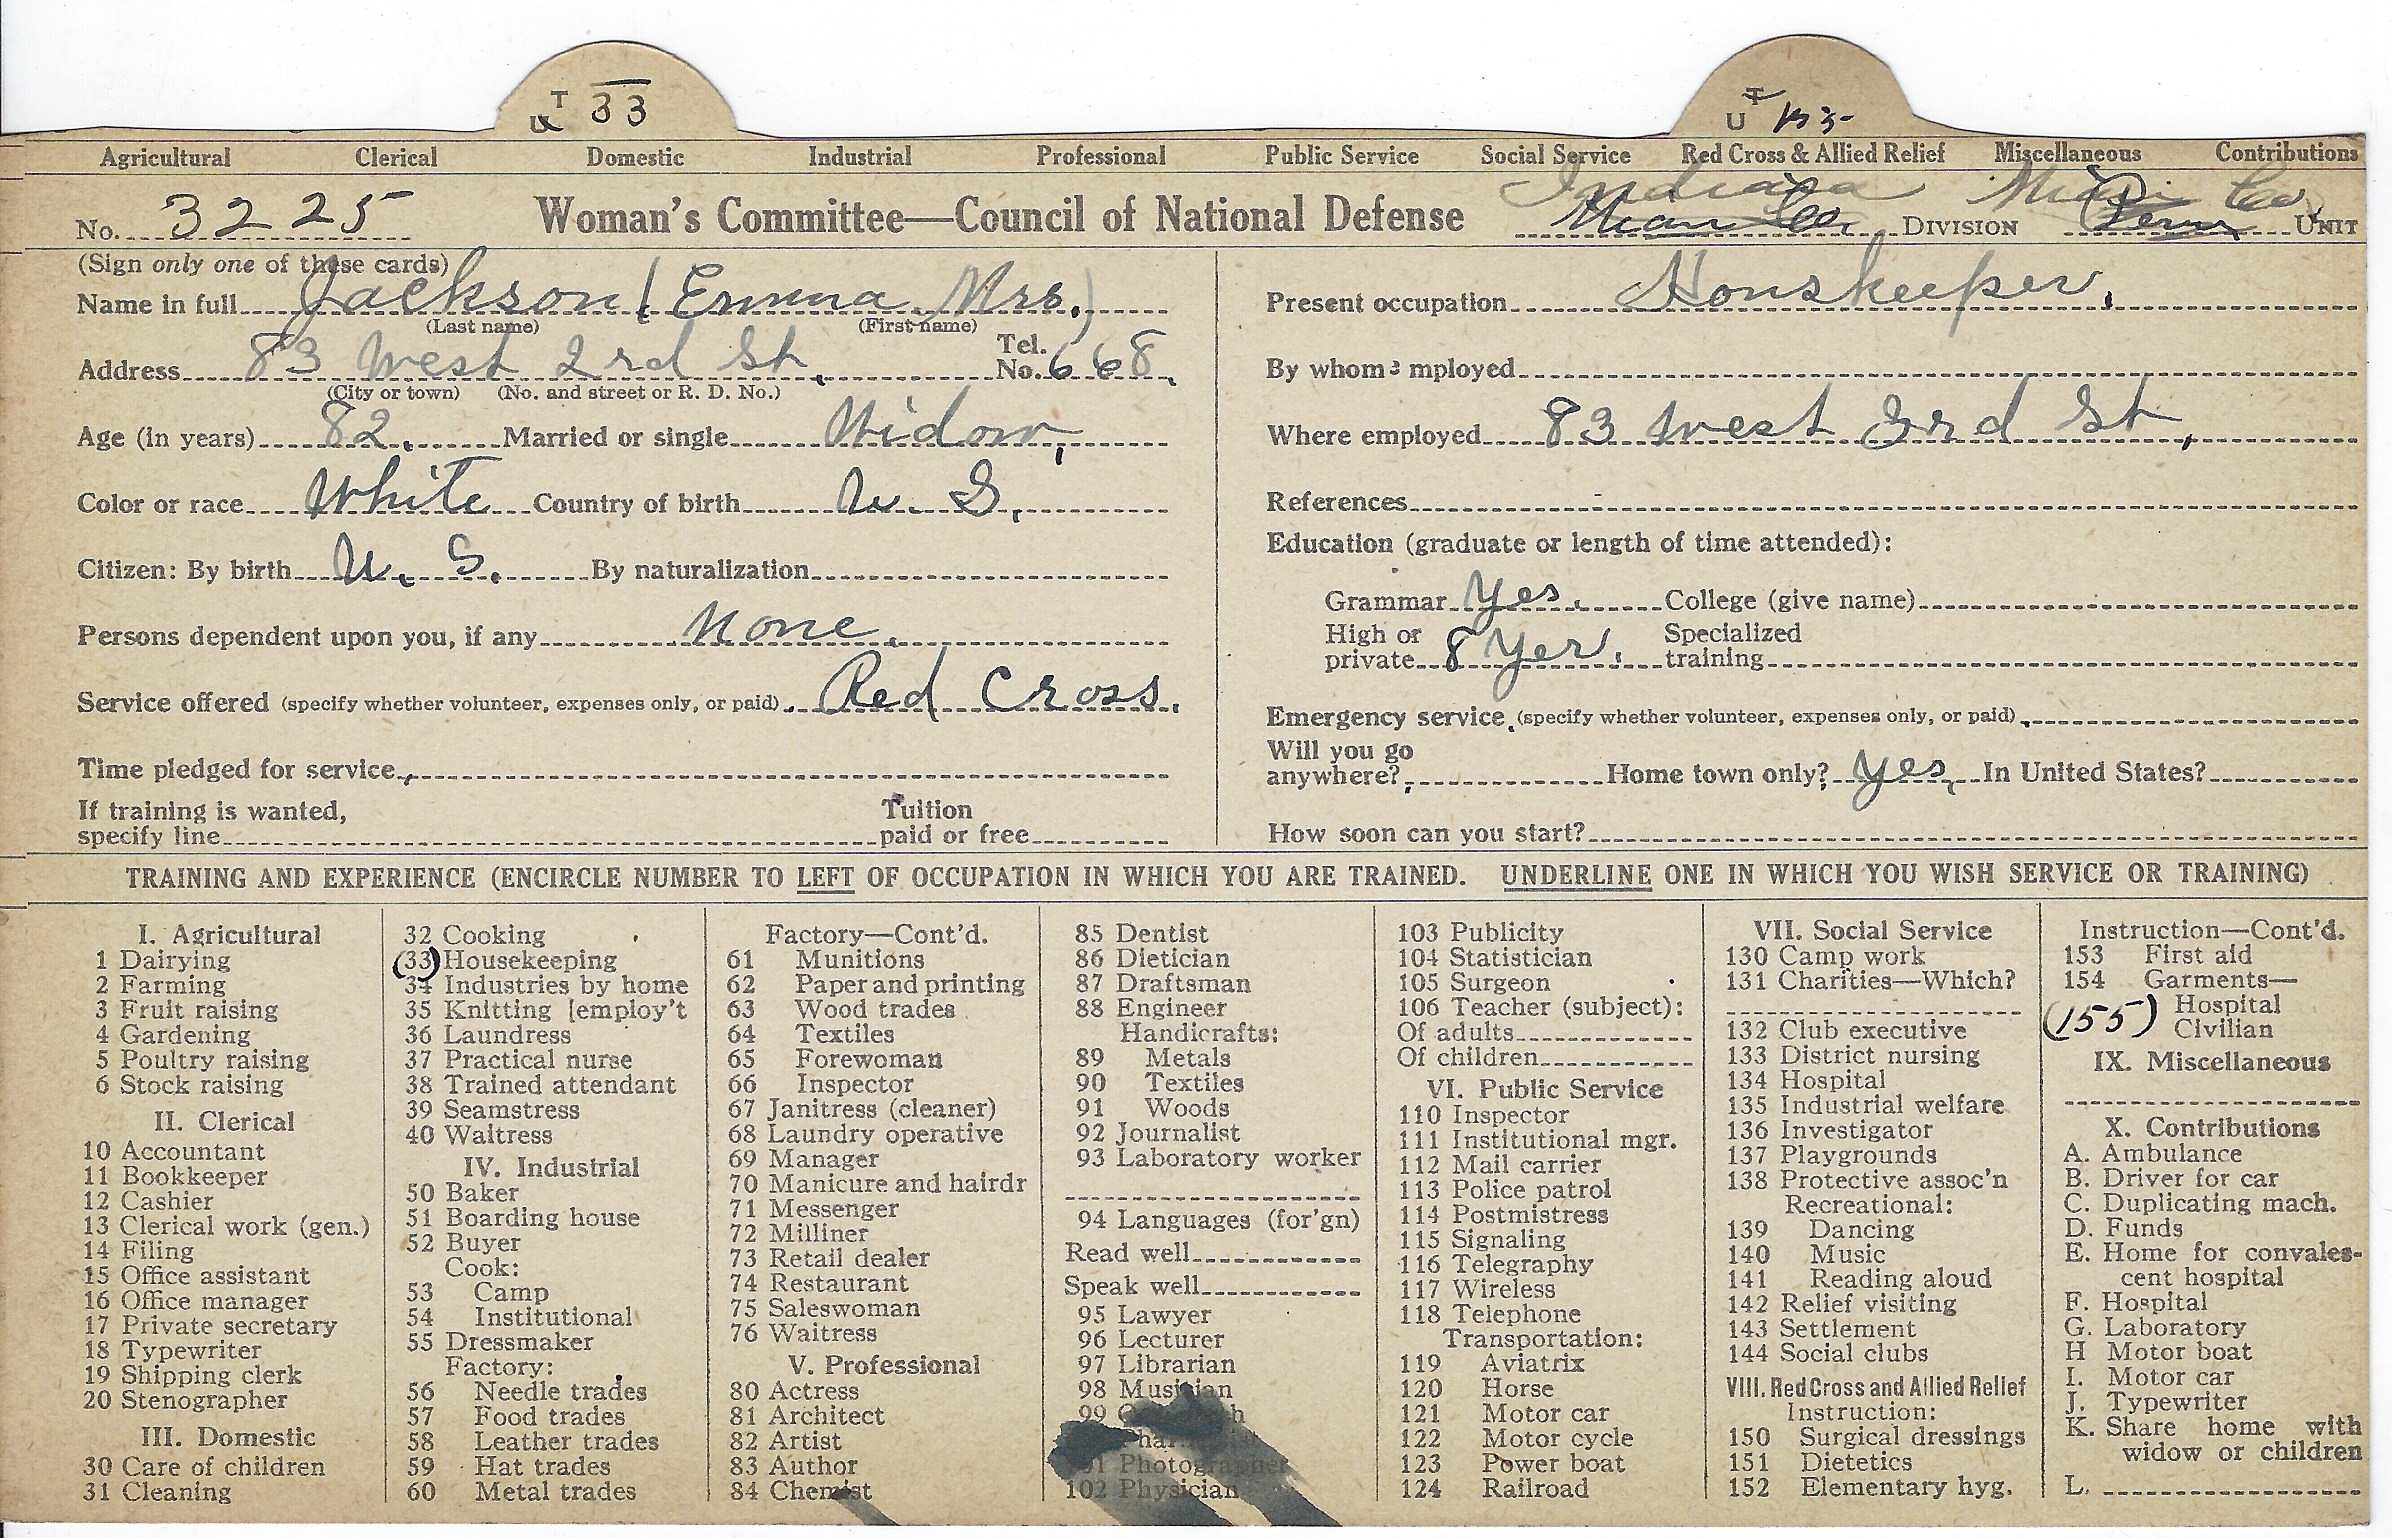 T
U 33
T
U 155
Agricultural Clerical Domestic Industrial Professional Public Service Social Service Red Cross & Allied Relief Miscellaneous Contributions
Indiana Miami Co.
No. 3225 Woman's Committee—Council of National Defense Miami Co. DIVISION Peru UNIT
(Sign only one of these cards)
Name in full Jackson (Emma Mrs.)
(Last name) (First name)
Address 83 West 2rd St. Tel. No. 668.
(City or town) (No. and street or R. D. No.)
Age (in years) 82. Married or single Widow,
Color or race White Country of birth U. S.
Citizen: By birth U. S. By naturalization
Persons dependent upon you, if any None.
Service offered (specify whether volunteer, expenses only, or paid) Red Cross.
Time pledged for service
If training is wanted, specify line Tuition paid or free
Present occupation Houskeeper.
By whom employed
Where employed 83 West 3rd St,
References
Education (graduate or length of time attended):
Grammar Yes. College (give name)
High or private 8 Yer. Specialized training
Emergency service (specify whether volunteer, expenses only, or paid)
Will you go anywhere? Home town only? Yes, In United States?
How soon can you start?
TRAINING AND EXPERIENCE (ENCIRCLE NUMBER TO LEFT OF OCCUPATION IN WHICH YOU ARE TRAINED. UNDERLINE ONE IN WHICH YOU WISH SERVICE OR TRAINING)
I. Agricultural
1 Dairying
2 Farming
3 Fruit raising
4 Gardening
5 Poultry raising
6 Stock raising
II. Clerical
10 Accountant
11 Bookkeeper
12 Cashier
13 Clerical work (gen.)
14 Filing
15 Office assistant
16 Office manager
17 Private secretary
18 Typewriter
19 Shipping clerk
20 Stenographer
III. Domestic
30 Care of children
31 Cleaning
32 Cooking
(33) Housekeeping
34 Industries by home
35 Knitting [employ't
36 Laundress
37 Practical nurse
38 Trained attendant
39 Seamstress
40 Waitress
IV. Industrial
50 Baker
51 Boarding house
52 Buyer
Cook:
53 Camp
54 Institutional
55 Dressmaker
Factory:
56 Needle trades
57 Food trades
58 Leather trades
59 Hat trades
60 Metal trades
Factory—Cont'd.
61 Munitions
62 Paper and printing
63 Wood trades
64 Textiles
65 Forewoman
66 Inspector
67 Janitress (cleaner)
68 Laundry operative
69 Manager
70 Manicure and hairdr
71 Messenger
72 Milliner
73 Retail dealer
74 Restaurant
75 Saleswoman
76 Waitress
V. Professional
80 Actress
81 Architect
82 Artist
83 Author
84 Chemist
85 Dentist
86 Dietician
87 Draftsman
88 Engineer
Handicrafts:
89 Metals
90 Textiles
91 Woods
92 Journalist
93 Laboratory worker
94 Languages (for'gn)
Read well
Speak well
95 Lawyer
96 Lecturer
97 Librarian
98 Musician
99
Pharmacist
101 Photographer
102 Physician
103 Publicity
104 Statistician
105 Surgeon
106 Teacher (subject):
Of adults
Of children
VI. Public Service
110 Inspector
111 Institutional mgr.
112 Mail carrier
113 Police patrol
114 Postmistress
115 Signaling
116 Telegraphy
117 Wireless
118 Telephone
Transportation:
119 Aviatrix
120 Horse
121 Motor car
122 Motor cycle
123 Power boat
124 Railroad
VII. Social Service
130 Camp work
131 Charities—Which?
132 Club executive
133 District nursing
134 Hospital
135 Industrial welfare
136 Investigator
137 Playgrounds
138 Protective assoc'n
Recreational:
139 Dancing
140 Music
141 Reading aloud
142 Relief visiting
143 Settlement
144 Social clubs
VIII. Red Cross and Allied Relief
Instruction:
150 Surgical dressings
151 Dietetics
152 Elementary hyg.
Instruction—Cont'd.
153 First aid
154 Garments—
Hospital
(155) Civilian
IX. Miscellaneous
X. Contributions
A. Ambulance
B. Driver for car
C. Duplicating mach.
D. Funds
E. Home for convales-
cent hospital
F. Hospital
G. Laboratory
H Motor boat
I. Motor car
J. Typewriter
K. Share home with
widow or children
L.